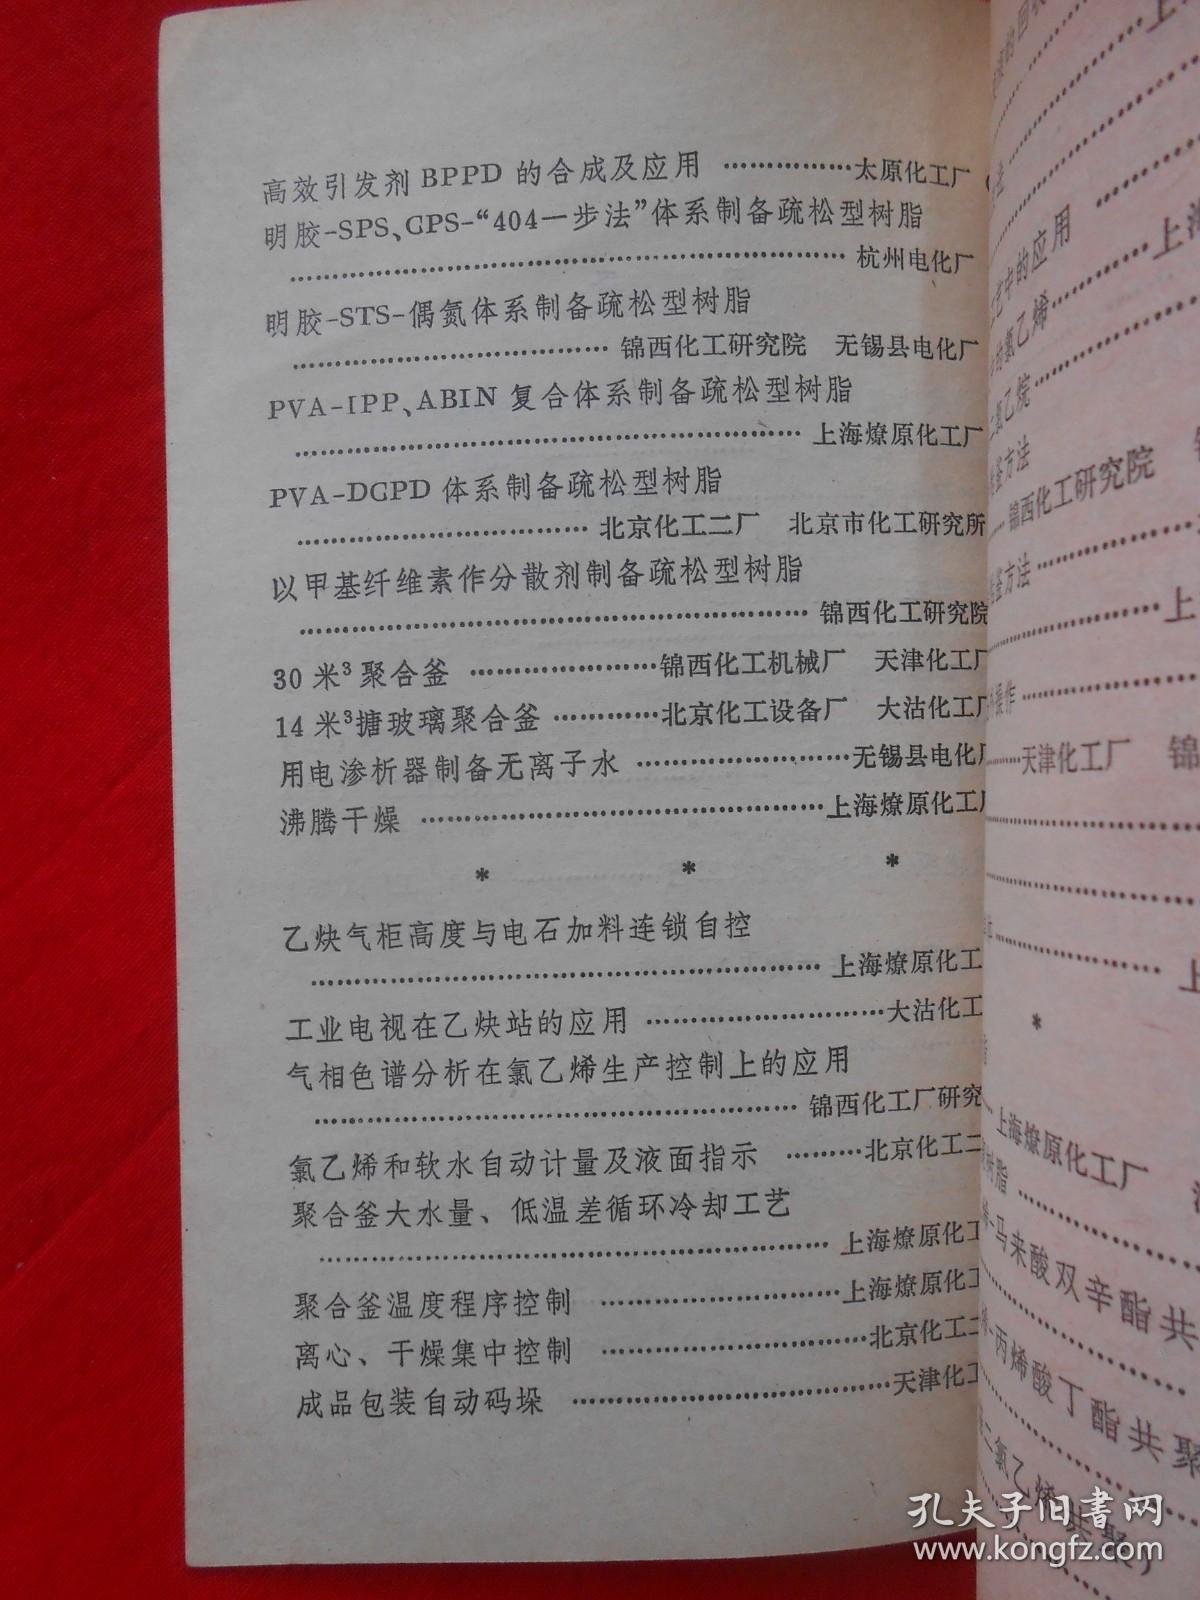 高效引发剂 BPPD 的合成及应用 ………………太原化工厂
明胶-SPS、CPS-“404一步法”体系制备疏松型树脂
………………………………………………………… 杭州电化厂
明胶-STS-偶氮体系制备疏松型树脂
……………………………… 锦西化工研究院　无锡县电化厂
PVA-IPP、ABIN 复合体系制备疏松型树脂
…………………………………………………… 上海燎原化工厂
PVA-DCPD 体系制备疏松型树脂
……………………………… 北京化工二厂　北京市化工研究所
以甲基纤维素作分散剂制备疏松型树脂
…………………………………………………… 锦西化工研究院
30 米³聚合釜 …………………锦西化工机械厂　天津化工厂
14 米³搪玻璃聚合釜 …………北京化工设备厂　大沽化工厂
用电渗析器制备无离子水 ……………………无锡县电化厂
沸腾干燥 ………………………………………上海燎原化工厂
* * *
乙炔气柜高度与电石加料连锁自控
…………………………………………………… 上海燎原化工
工业电视在乙炔站的应用 ………………………大沽化工
气相色谱分析在氯乙烯生产控制上的应用
………………………………………………… 锦西化工厂研究
氯乙烯和软水自动计量及液面指示 ………北京化工二
聚合釜大水量、低温差循环冷却工艺
…………………………………………………… 上海燎原化工
聚合釜温度程序控制 ………………………上海燎原化工
离心、干燥集中控制 …………………………北京化工二
成品包装自动码垛 ………………………………天津化工
的回
上
中的应用
上海
氯乙烯
氯乙烷
釜方法
锦西化工研究院　锦
釜方法
上
操作
天津化工厂　锦
上
*
上海燎原化工厂
树脂
马来酸双辛酯共
丙烯酸丁酯共聚
二氯乙烯共聚
孔夫子旧书网
www.kongfz.com